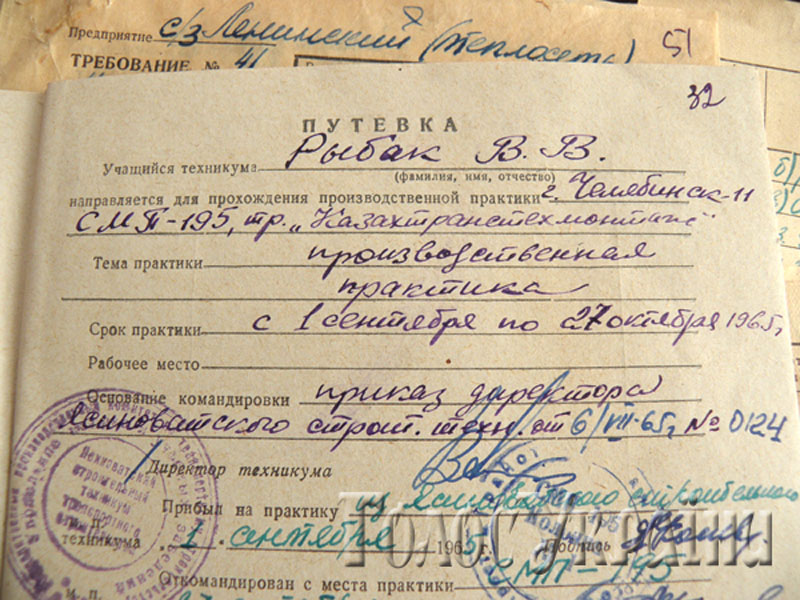 Предприятие с/з Ленинский (теплосеть) 51
ТРЕБОВАНИЕ № 41
32
ПУТЕВКА
Учащийся техникума Рыбак В. В.
(фамилия, имя, отчество)
направляется для прохождения производственной практики г. Челябинск-11
СМП-195, тр. „Казахтранстехмонтаж"
Тема практики производственная
практика
Срок практики с 1 сентября по 27 октября 1965,
Рабочее место
Основание командировки приказ директора
Ясиноватского строит. техн. от 6/VII-65, № 0124
Директор техникума
Прибыл на практику из Ясиноватского строительного
техникума 1 сентября 1965 г. Подпись
Откомандирован с места практики СМП-195
Голос Украïни